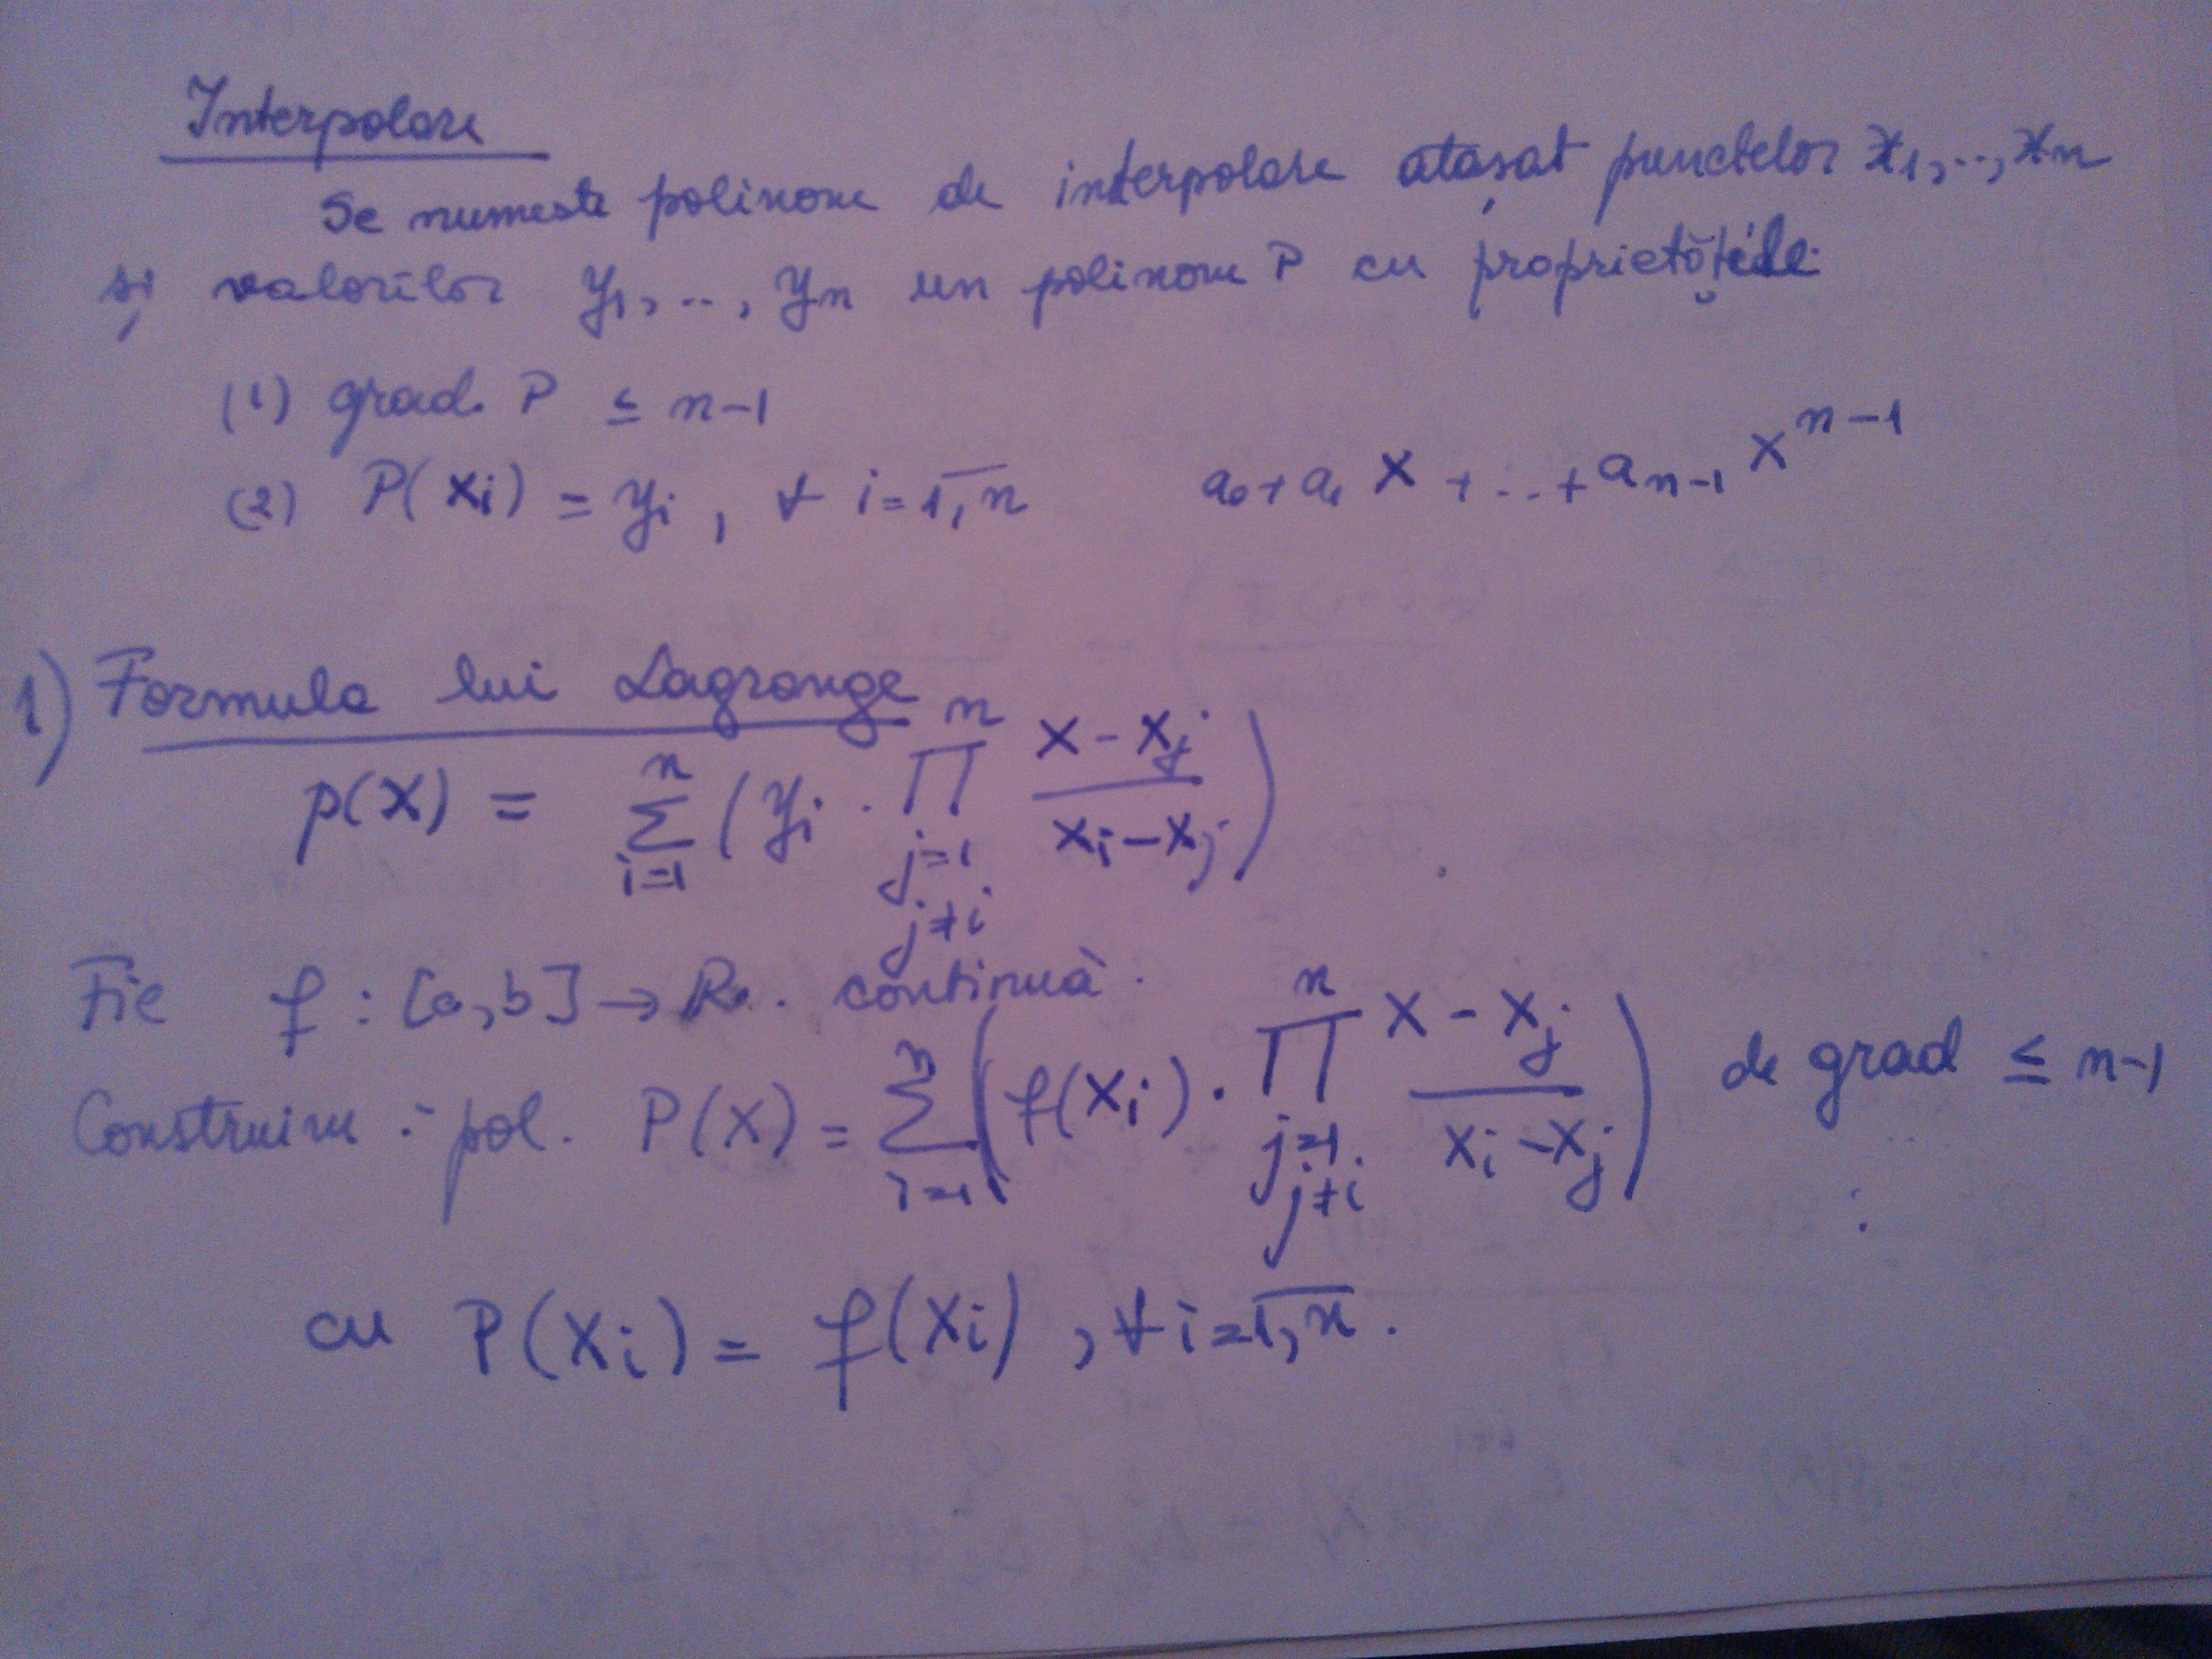 Interpolare
Se numeste polinom de interpolare atașat punctelor x₁,..,xₙ
și valorilor y₁,..,yₙ un polinom P cu proprietățile
(1) grad. P ≤ n-1
(2) P(xᵢ) = yᵢ, ∀ i=1,n̅ a₀+a₁X+...+aₙ₋₁Xⁿ⁻¹
1) Formula lui Lagrange
p(X) = ∑ᵢ₌₁ⁿ (yᵢ · ∏ⱼ₌₁, ⱼ≠ᵢⁿ (X-xⱼ)/(xᵢ-xⱼ))
Fie f : [a,b] → R. continuă.
Construim pol. P(X) = ∑ᵢ₌₁ⁿ (f(xᵢ) · ∏ⱼ₌₁, ⱼ≠ᵢⁿ (X-xⱼ)/(xᵢ-xⱼ)) de grad ≤ n-1
cu P(xᵢ) = f(xᵢ), ∀ i=1,n̅.